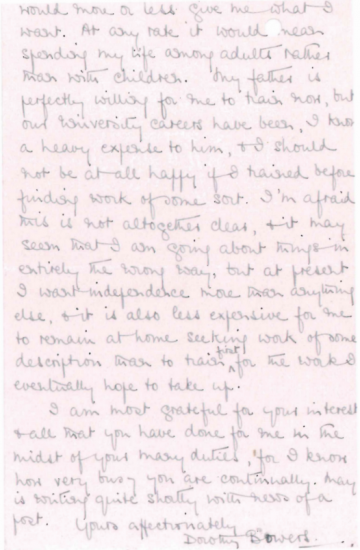 would more or less give me what I
want. At any rate it would mean
spending my life among adults rather
than with children. My father is
perfectly willing for me to train now, but
our University careers have been, I know
a heavy expense to him, & I should
not be at all happy if I trained before
finding work of some sort. I'm afraid
this is not altogether clear, & it may
seem that I am going about things in
entirely the wrong way, but at present
I want independence more than anything
else, & it is also less expensive for me
to remain at home seeking work of some
description than to train first for the work I
eventually hope to take up.
I am most grateful for your interest
& all that you have done for me in the
midst of your many duties, for I know
how very busy you are continually. May
is writing quite shortly with news of a
post.
Yours affectionately
Dorothy Bowers.